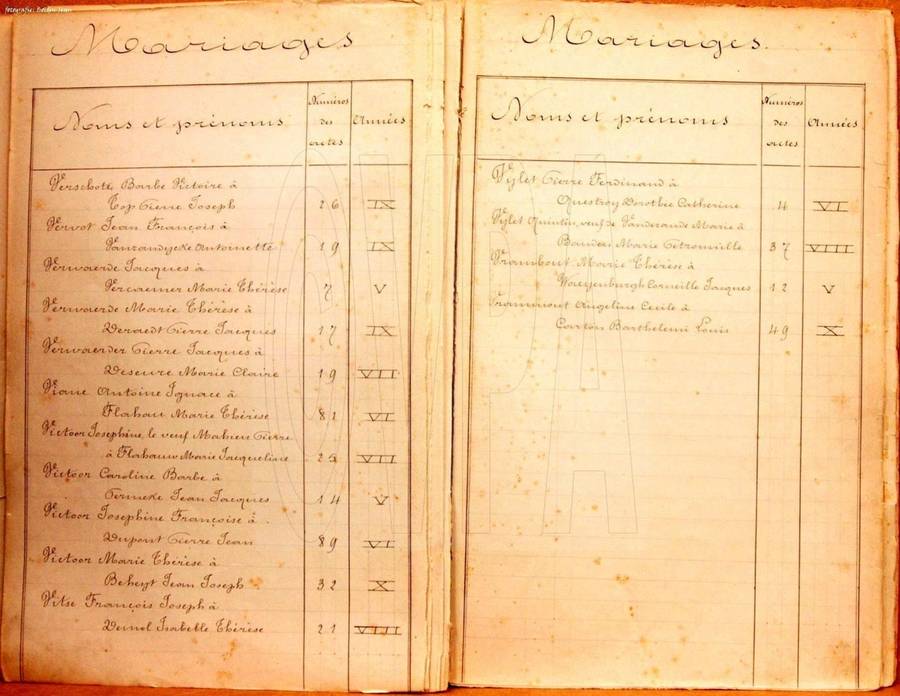 fotografie:
Mariages
Noms et prénoms
Numéros des actes
Années
Verschote Barbe Victoire à
Top Pierre Joseph 26 IX
Vervot Jean François à
Vanzandycke Antoinette 19 IX
Verwaerde Jacques à
Vercaemer Marie Thérèse 7 V
Verwaerde Marie Thérèse à
Deraedt Pierre Jacques 17 IX
Verwaerder Pierre Jacques à
Deseure Marie Claire 19 VII
Viane Antoine Ignace à
Flahau Marie Thérèse 81 VI
Victoor Josephine, le veuf Mahieu Pierre
à Flahauw Marie Jacqueline 25 VII
Victoor Caroline Barbe à
Termeke Jean Jacques 14 V
Victoor Josephine Françoise à
Dupont Pierre Jean 89 VI
Victoor Marie Thérèse à
Beheyt Jean Joseph 32 X
Vitse François Joseph à
Demol Isabelle Thérèse 21 VIII
Mariages.
Noms et prénoms
Numéros des actes
Années
Vylet Pierre Ferdinand à
Questroy Dorothée Catherine 4 VI
Vylet Quintin, veuf de Vanderande Marie à
Bauden Marie Pétronille 37 VIII
Vrambout Marie Thérèse à
Waeyenburgh Corneille Jacques 12 V
Vrammout Angeline Cecile à
Carton Barthelemi Louis 49 X